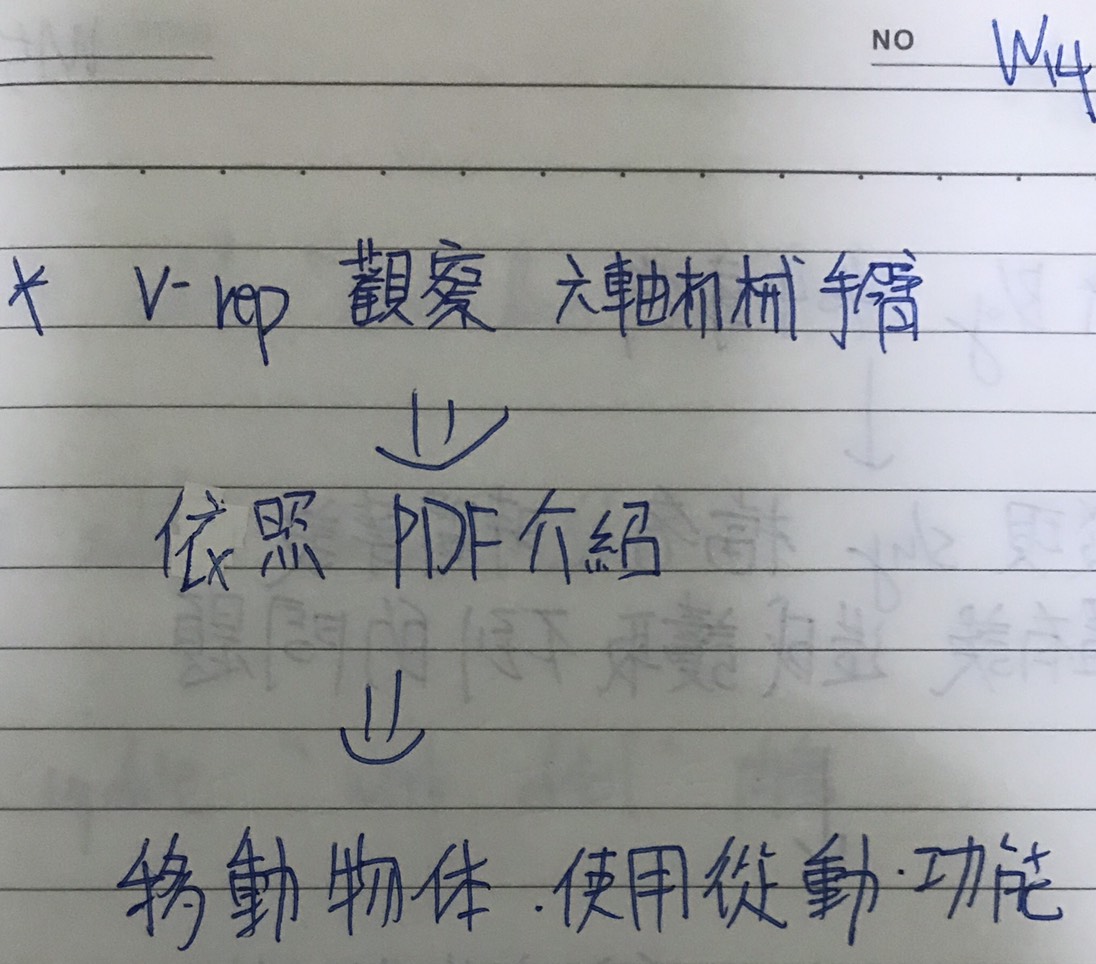 NO W14
* V-rep 觀察 六軸机械手臂
⇓
依照 PDF介紹
⇓
移動物体.使用從動.功能